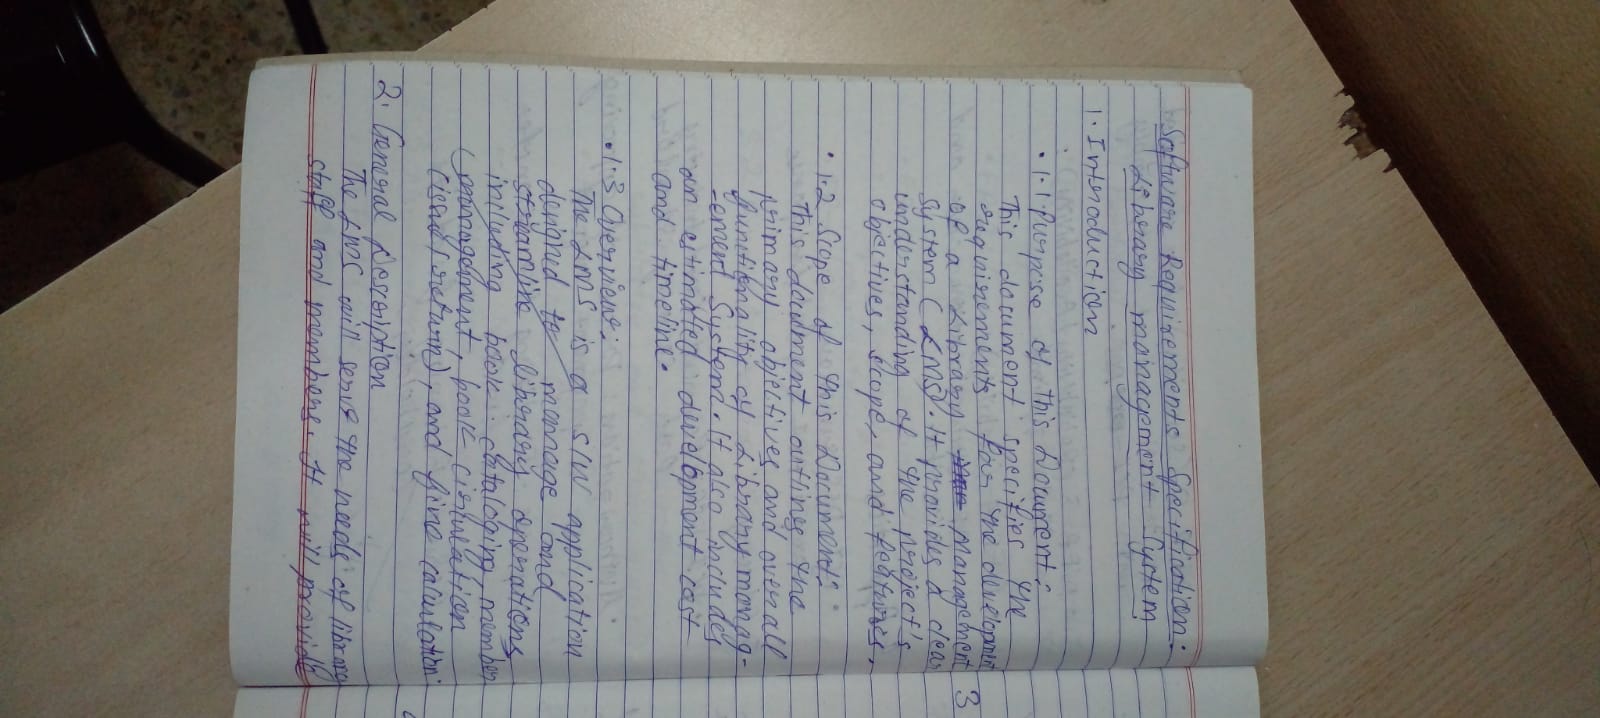 Software Requirements Specification:
Library management System
1. Introduction
• 1.1 Purpose of this Document:
This document specifies the
requirements for the development
of a Library Management
System (LMS). It provides a clear
understanding of the project's
objectives, scope, and features.
• 1.2 Scope of this Document:
This document outlines the
primary objectives and overall
funtionality of Library manag-
-ement System. It also includes
an estimated development cost
and timeline.
• 1.3 Overview:
The LMS is a S/W application
designed to manage and
streamline library operations,
including book cataloging, member
management, book circulation
(issue/return), and fine calculation.
2. General Description
The LMS will serve the needs of library
staff and members. It will provide
3